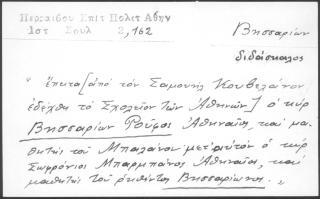 Περαιβού Επιτ Πολιτ Αθην
Ιστ Σουλ 2,162
Βησσαρίων
διδάσκαλος
"έπειτα [ἀπό τόν Σαμουήλ Κουβελάνον
ἐδέχθη τό Σχολεῖον τῶν Ἀθηνῶν] ὁ κύρ
Βησσαρίων Ροῦφος Ἀθηναῖος, καί μα-
θητής τοῦ Μπαλάνου μετ' αὐτόν ὁ κύρ
Σωφρόνιος Μπαρμπάνος Ἀθηναῖος, καί
μαθητής τοῦ ῥηθέντος Βησσαρίωνος."